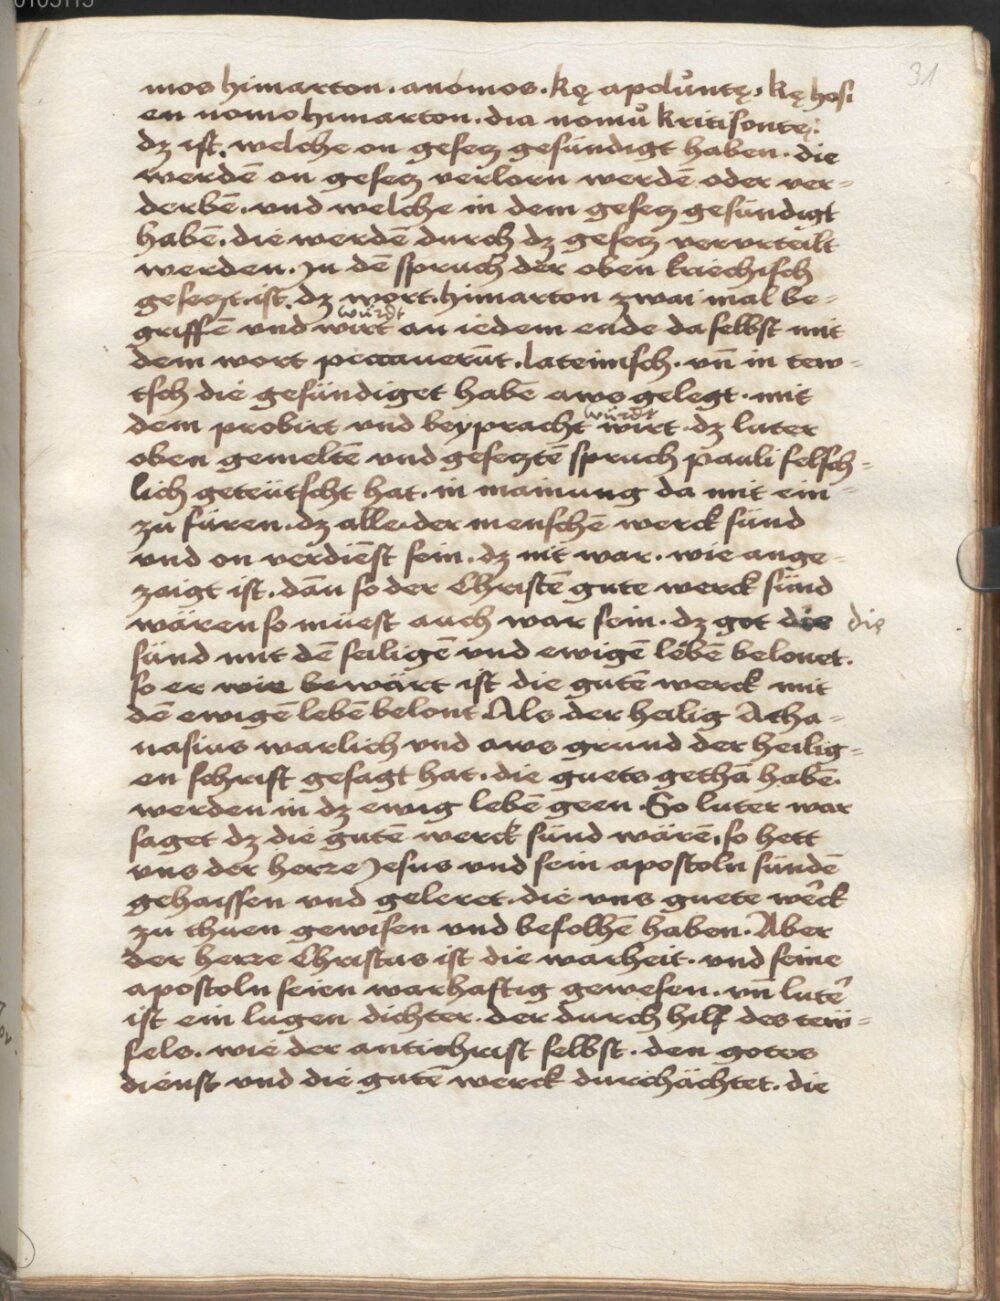 31
mos himarton. anomos. kę apolůntę, kę hosi
en nomo himarton. dia nomů kritisontę:
dz ist. welche on gesetz gesündigt haben. die
werdē on gesetz verlorn werdē oder ver-
derbē. vnd welche in dem gesetz gesündigt
habē. die werdē durch dz gesetz vervrteilt
werden. Jn dē spruch der oben kriechisch
gesetzt. ist. dz wort. himarton zwai mal be-
würdt
griffē vnd wirt an iedem ende daselbst mit
dem wort peccauerūt. lateinisch. vn̄ in tew-
tsch die gesündiget habē aws gelegt. mit
würdt
dem probirt vnd beypracht wirt. dz luter
oben gemeltē vnd gesetztē spruch pauli felsch-
lich geteütscht hat. in mainung da mit ein-
zu füren. dz alle der menschē werck sünd
vnd on verdiēst sein. dz nit war. wie ange-
zaigt ist. dan̄ so der Christē gute werck sünd
wären so müest auch war sein. dz got die die
sünd mit dē seiligē vnd ewigē lebē belonet.
so er wie bewärt ist die gutē werck mit
dē ewigē lebē belont. Als der heilig Atha-
nasius warlich vnd aws grund der heilig-
en schrift gesagt hat. die guets gethā habē.
werden in dz ewig lebē geen. So luter war
saget dz die gutē werck sünd wärē, so hett
vns der herre Jesus vnd sein apostoln sündē
gehaissen vnd geleret. die vns guete werck
zu thuen gewisen vnd befolhē haben. Aber
der herre Christus ist die warheit. vnd seine
apostoln seien warhaftig gewesen. vn̄ luter
ist ein lugen dichter. der durch hilf des tew-
fels. wie der antichrist selbst. den gotes
dienst vnd die gutē werck durchächtet. die